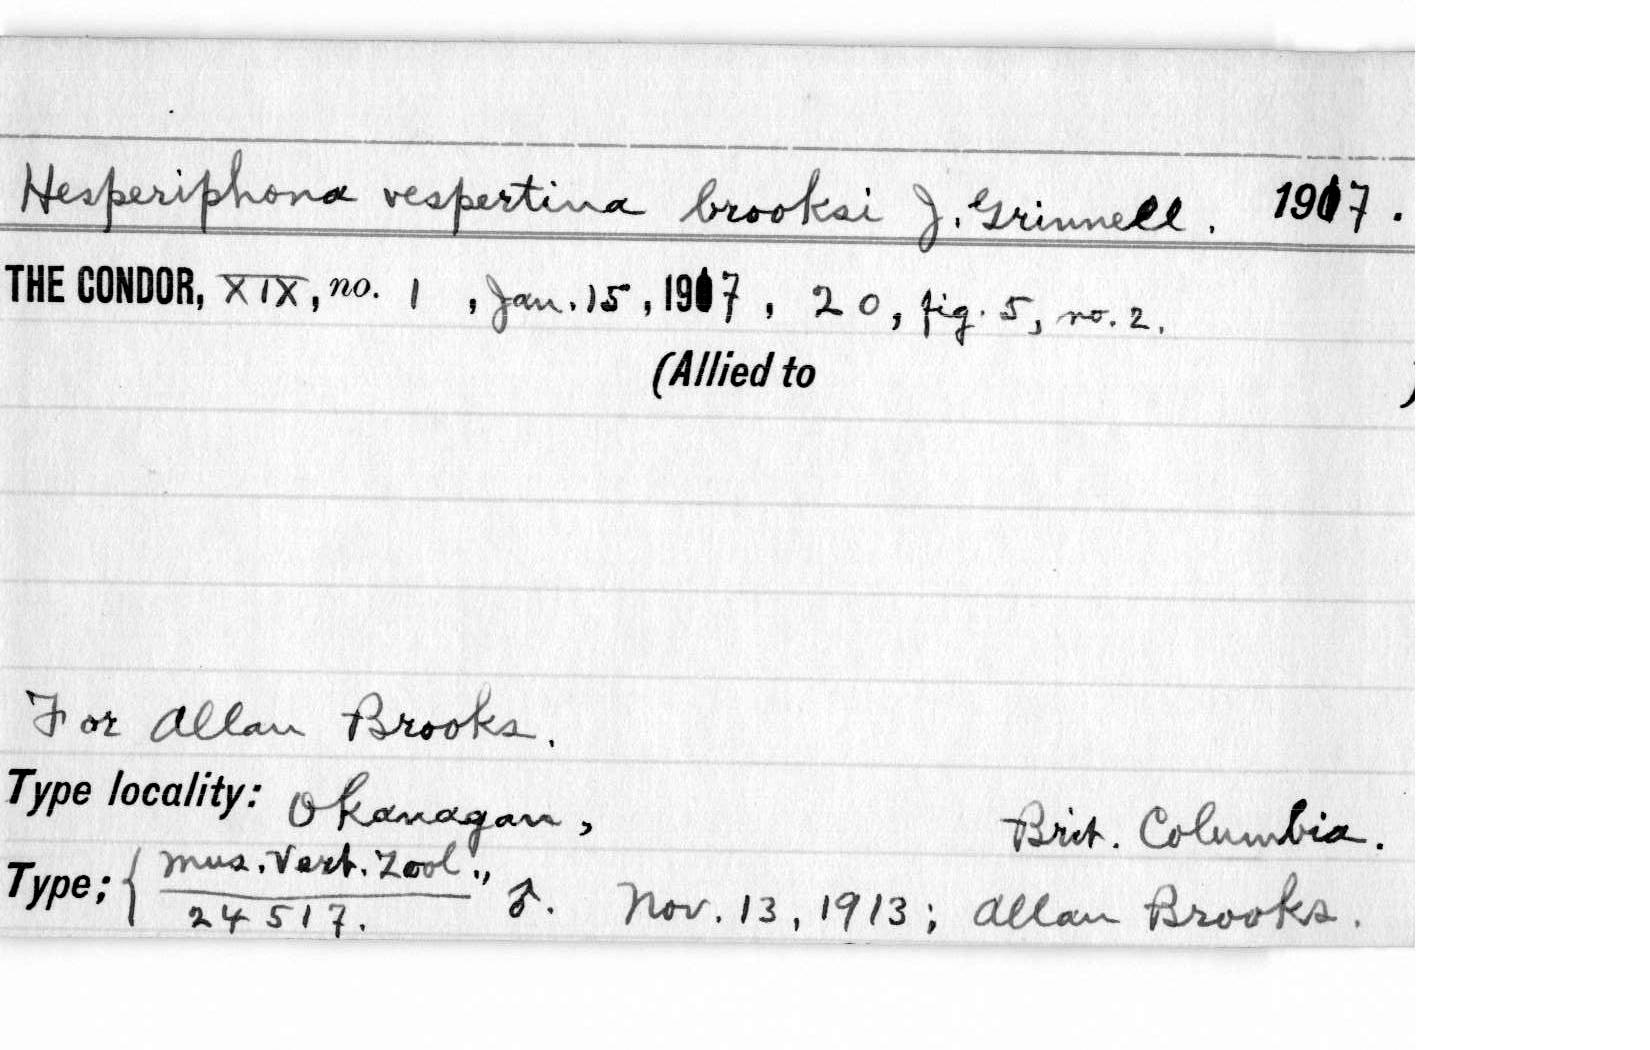 Hesperiphona vespertina brooksi J. Grinnell. 1917.
THE CONDOR, XIX, no. 1, Jan. 15, 1917, 20, fig. 5, no. 2.
(Allied to )
For Allan Brooks.
Type locality: Okanagan, Brit. Columbia.
Type; { Mus. Vert. Zool., ♂. Nov. 13, 1913; Allan Brooks.
24517.